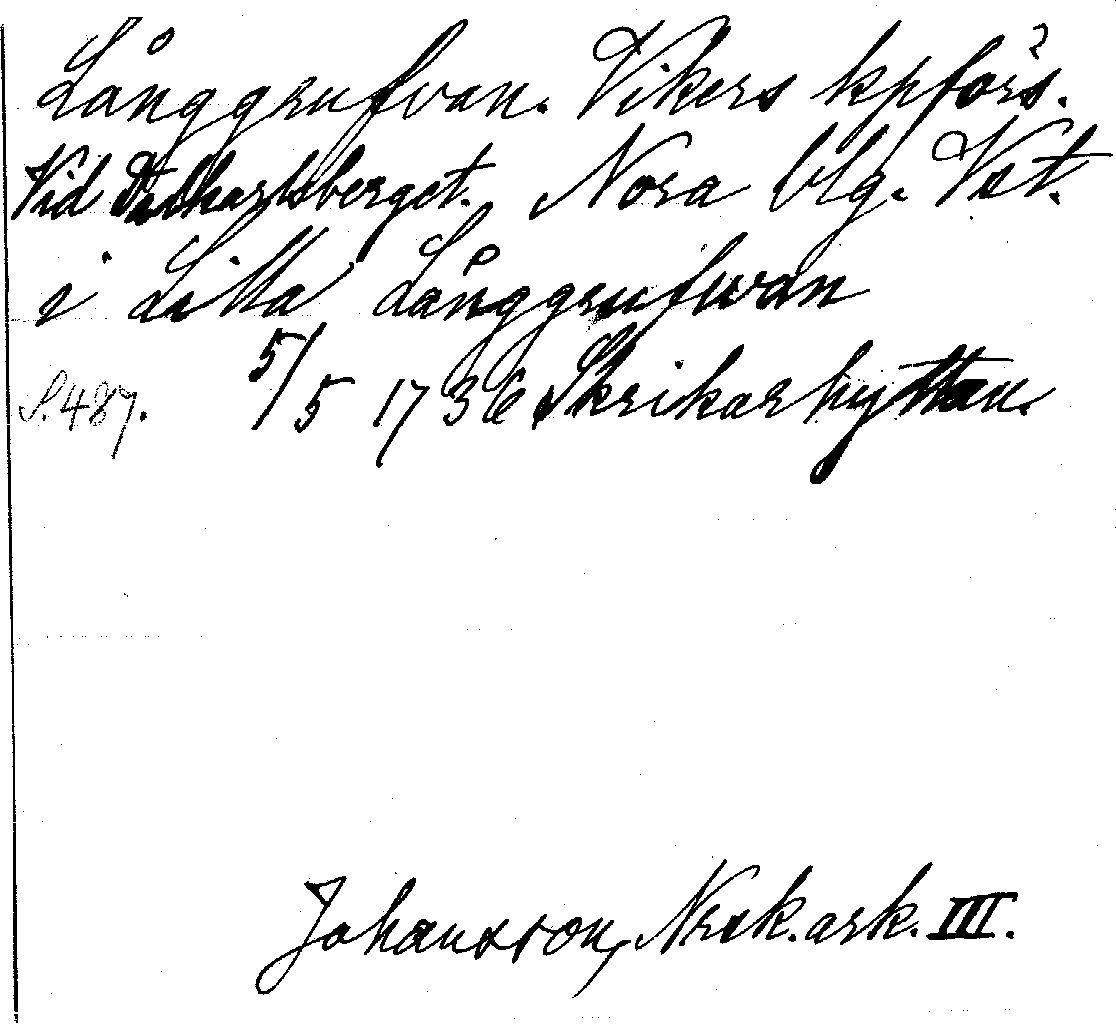 Långgrufvan. Vikers kpförs.
Vid Dalkarlsberget. Nora blg. Vst.
i Lilla Långgrufwan
S. 487. 5/5 1736 Skrikarhyttan.
Johansson, Norsk. ark. III.